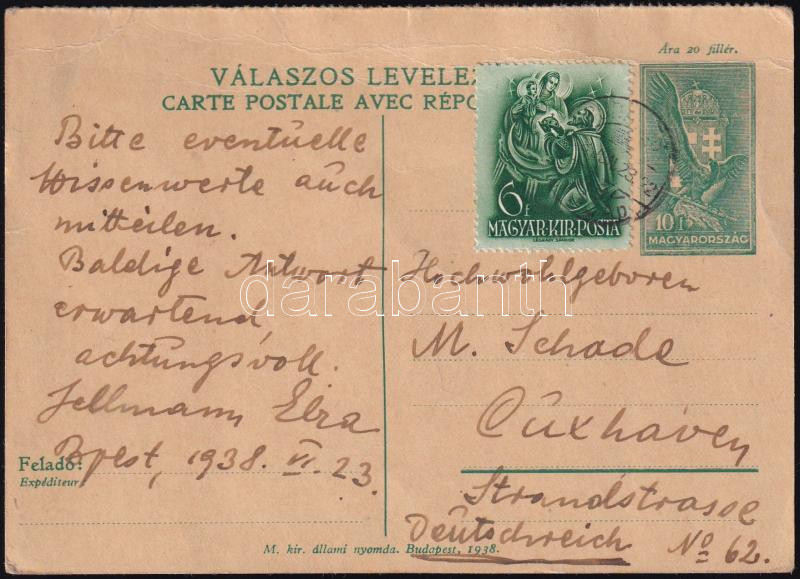 Ára 20 fillér.
VÁLASZOS LEVELEZ
CARTE POSTALE AVEC RÉPO
6f
MAGYAR·KIR·POSTA
10 f
MAGYARORSZÁG
Bitte eventuelle
Wissenwerte auch
mitteilen.
Baldige Antwort
erwartend,
achtungsvoll.
Bpest, 1938. VI. 23.
Feladó:
Expéditeur
Hochwohlgeboren
M. Schade
Cuxhaven
Strandstrasse
No 62.
Deutschreich
M. kir. állami nyomda. Budapest, 1938.
darabanth